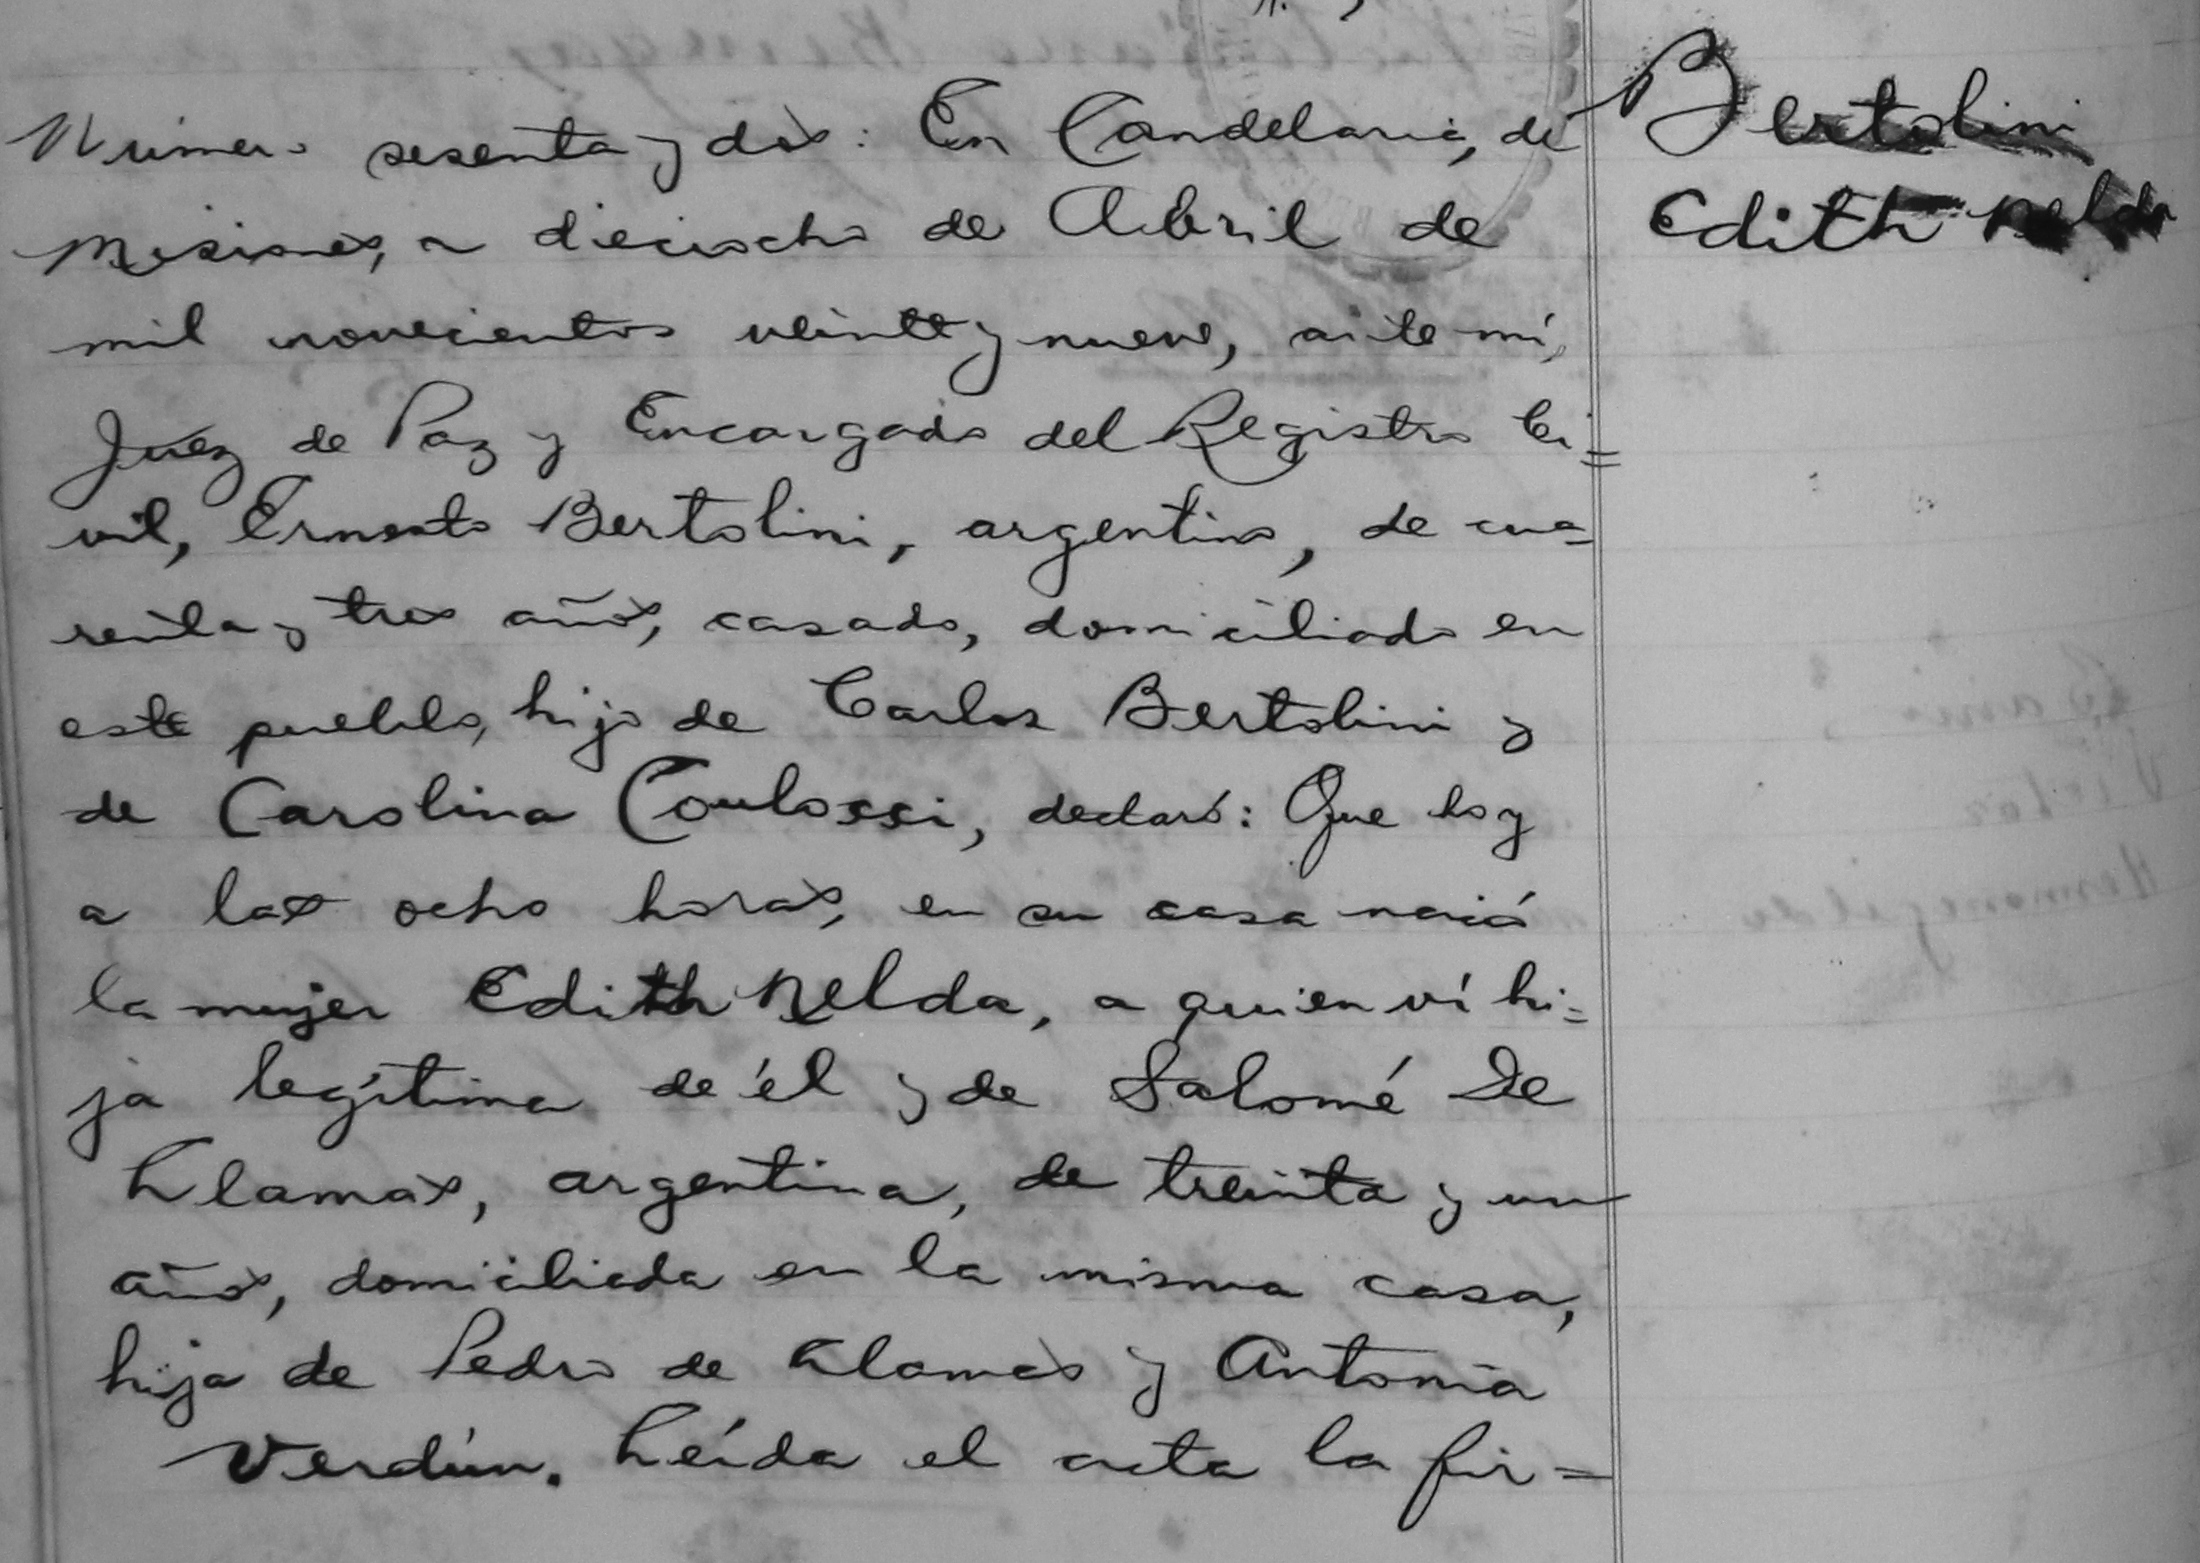 Bertolini
Edith Nelda
Número sesenta y dos: En Candelaria, de
Misiones, a dieciocho de Abril de
mil novecientos veinte y nueve, ante mí,
Juez de Paz y Encargado del Registro Ci=
vil, Ernesto Bertolini, argentino, de cua=
renta y tres años, casado, domiciliado en
este pueblo, hijo de Carlos Bertolini y
de Carolina Coulossi, declaró: Que hoy
a las ocho horas, en su casa nació
la mujer Edith Nelda, a quien ví hi=
ja legítima de él y de Salomé De
Llamas, argentina, de treinta y un
años, domiciliada en la misma casa,
hija de Pedro de Llamas y Antonia
Verdún. Leída el acta la fir=